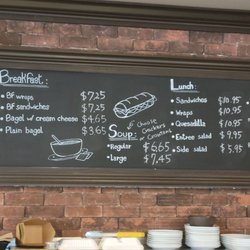 Breakfast:
• BF wraps $7.25
• BF sandwiches $7.25
• Bagel w/ cream cheese $4.65
• Plain bagel $3.65
Soup:
• Choose
Crackers
or Croissant
• Regular $6.65
• Large $7.45
Lunch:
• Sandwiches $10.95
• Wraps $10.95
• Quesadilla $10.95
• Entree salad $9.95
• Side salad $5.95